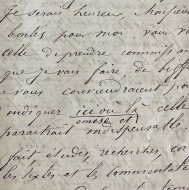 Je serais heureux, Monsieur
bontés pour moi vous
celle de prendre connaiss
que je vais faire de
vous voudriez
indiquer ici où là celle
omise et
paraîtrait indispensable
fait études, recherches, con
les textes et les commentate